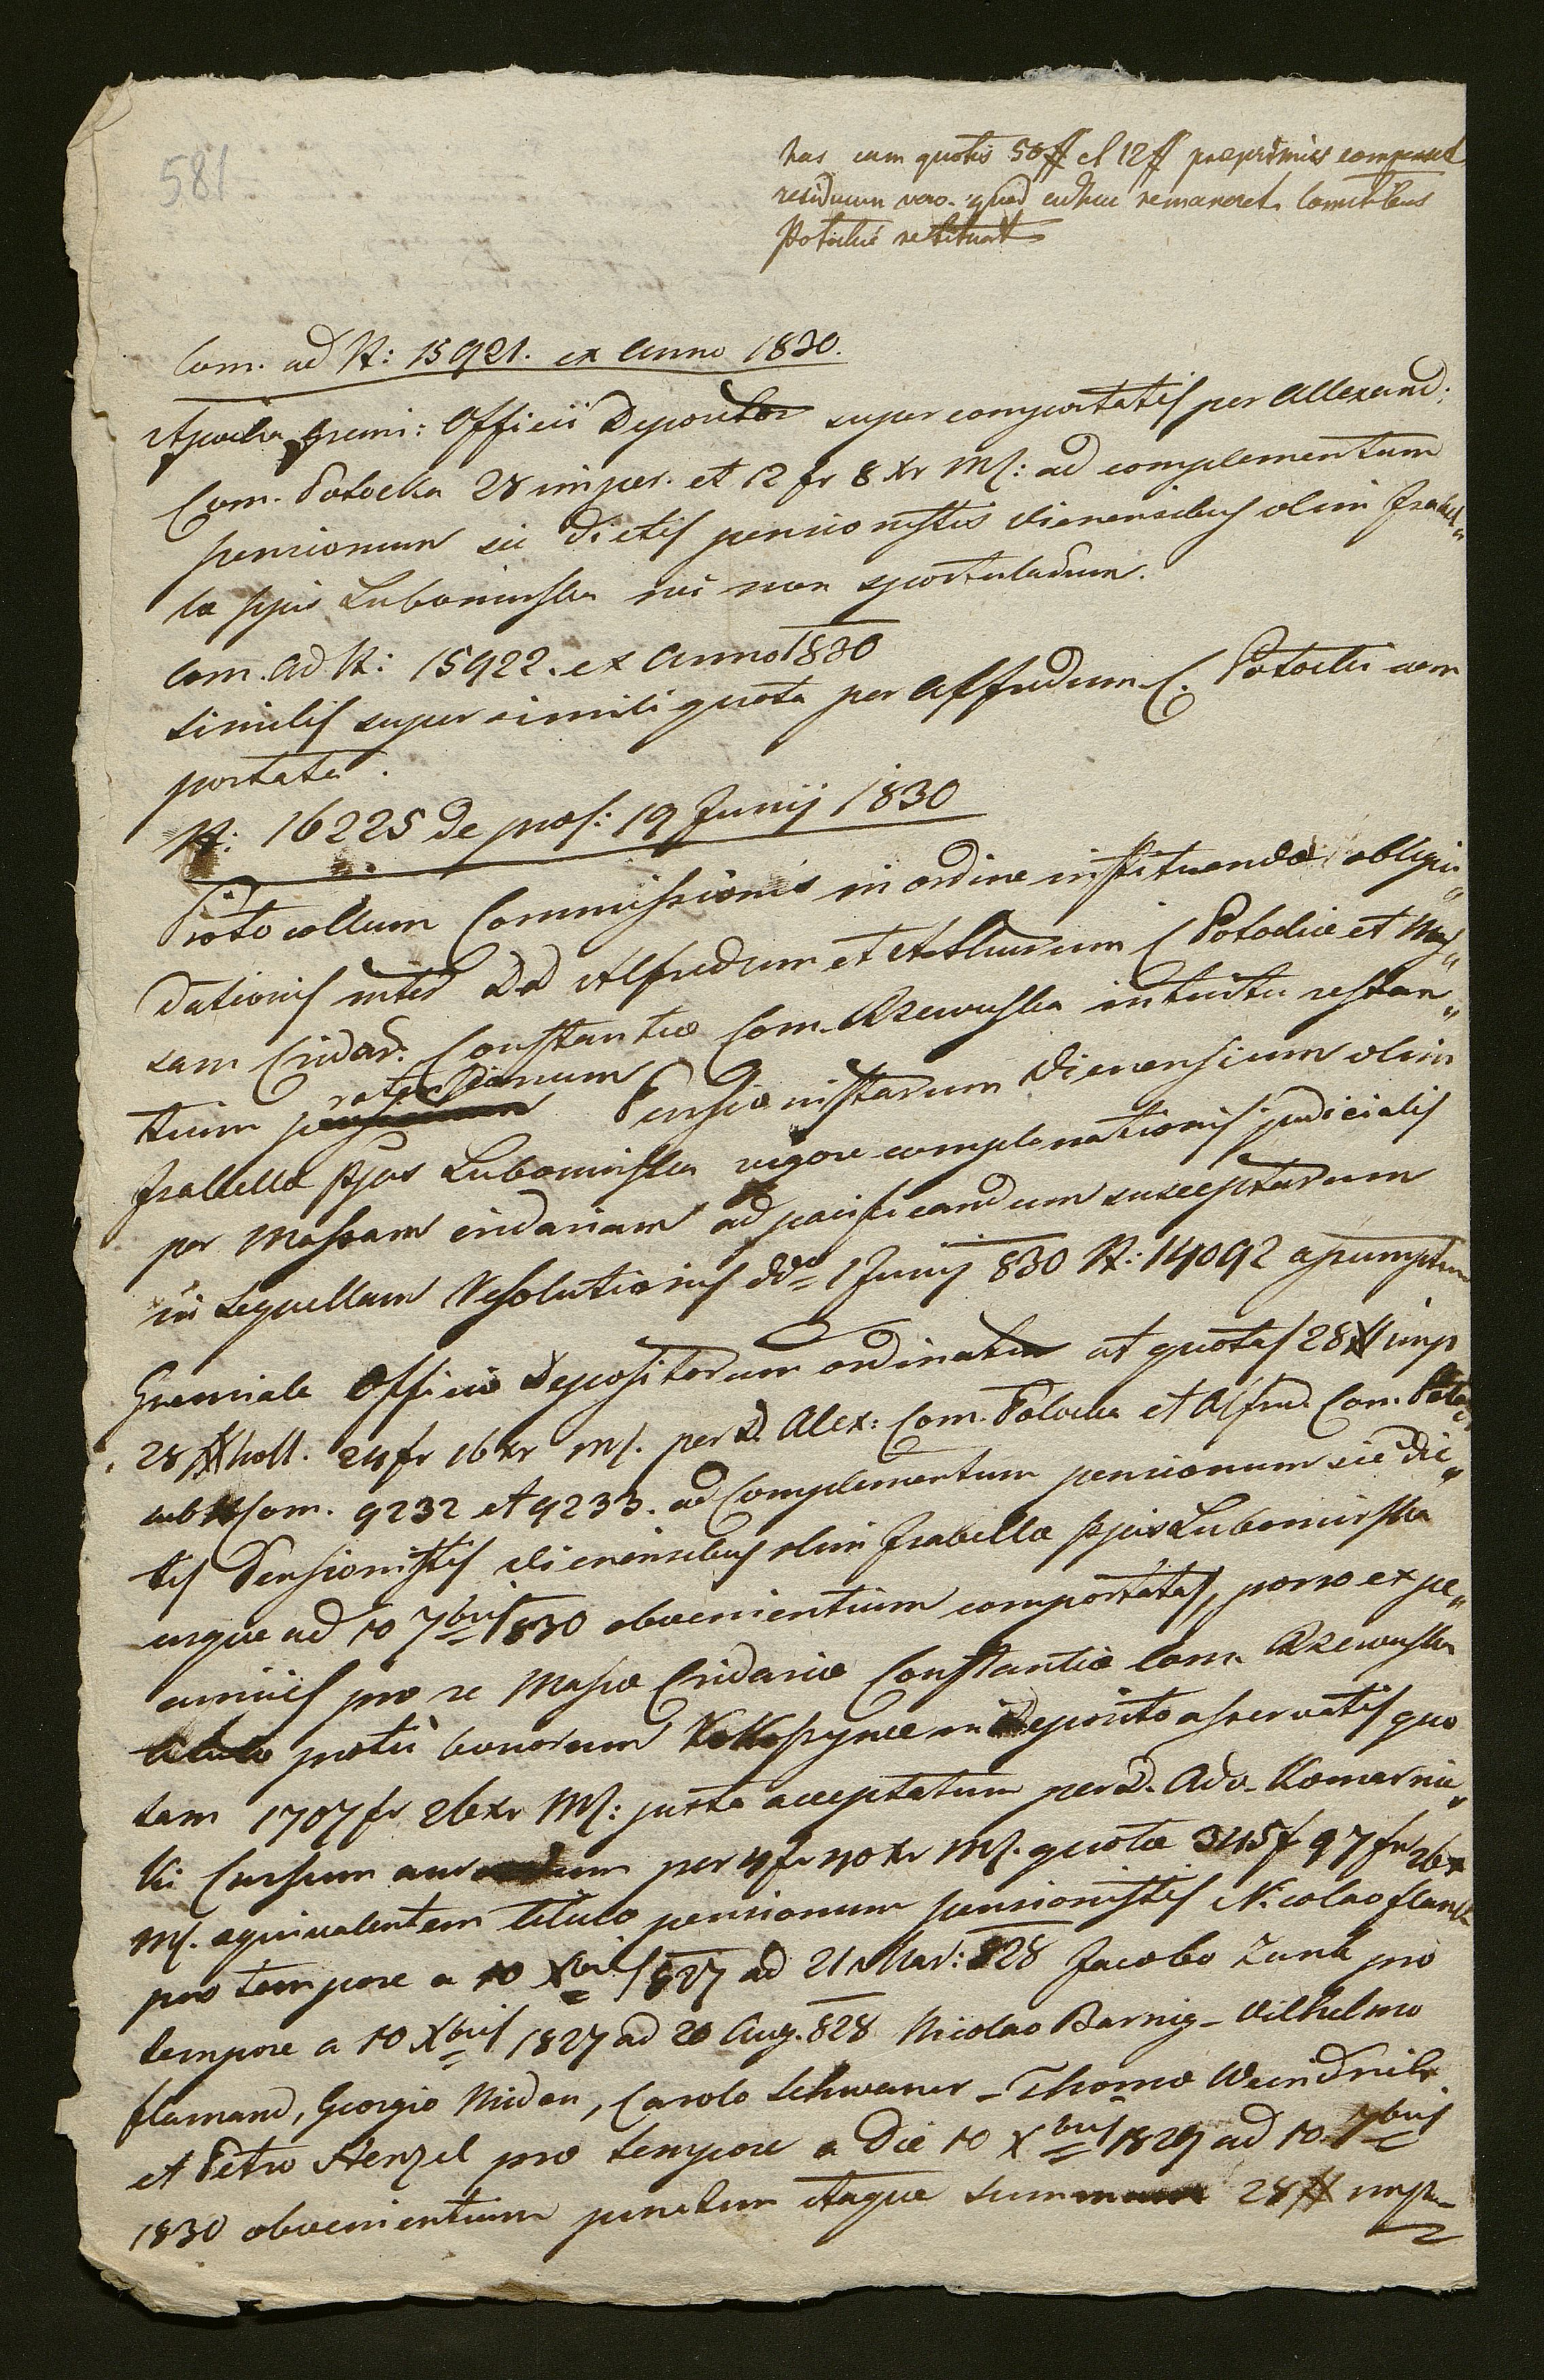 581
has cum quotis 50 # et 12 # praeprimis compenset
residuum vero quod adhuc remaneret Comitibus
Potockie restituat
Com. ad N: 15921. ex Anno 1830.
Apocha Gremi: Officii Depositor super comportatis per Allexand:
Com. Potocka 28 imper. et 12 fr 8 xr M: ad complementum
pensionum sic dictis pensionistis Vienensibus olim Isabel„
la Ppis Lubomirska nec non sportulaum.
Com. ad N: 15922. ex Anno 1830
Similis super simili quota per Alfredum C. Potocki com
portata.
N: 16225 de praes: 19 Junij 1830
Protocollum Commissionis in ordine instituendae obligui„
dationis inter DD Alfredum et Arthurum C Potockie et Mas„
sam Cridar: Constantiae Com. Rzewuska intuitu restan„
tium ratar pensionum Pensionistarum Vienensium olim
Isabella Ppis Lubomirska vigore complanationis judicialis
per Massam cridariam ad pacificandum susceptarum
in sequellam Resolutionis ddo 1 Junij 830 N: 14092 assumptum
Gremiale Officio Depositorum ordinatur ut quotas 28 # imp
28 # holl. 24 fr 16 xr M. per D. Alex: Com. Potocka et Alfred. Com. Potoc„
sub N Com. 9232 et 9233. ad Complementum pensionum sic dic„
tis Pensionistis Vienensibus olim Isabella Ppis Lubomirska
usque ad 10 7bris 1830 obvenientium comportatas, porro ex pe„
cuniis pro re Massae Cridariae Constantiae Com. Rzewuska
titulo pretii bonorum in deposito asservatis quo
tam 1707 fr 26 xr M: juxta acceptatum per D. Adv. Komarnic„
ki Cursum per 4 fr 40 xr M. quotae 345 97 fr 26 x
M. equivalentem titulo pensionum pensionistis Nicolao flam
pro tempore a 10 Xbris 1827 ad 21 Mar: 828 Jacobo Zunk pro
tempore a 10 Xbris 1827 ad 20 Aug. 828 Nicolao Barnig – Vilhelmo
flamand, Georgio Nider, Carolo Schwaner – Thoma
et Petro Henzel pro tempore a die 10 Xbris 1829 ad 10 7bris
1830 obvenientium junctim itaque summam 28 # imp